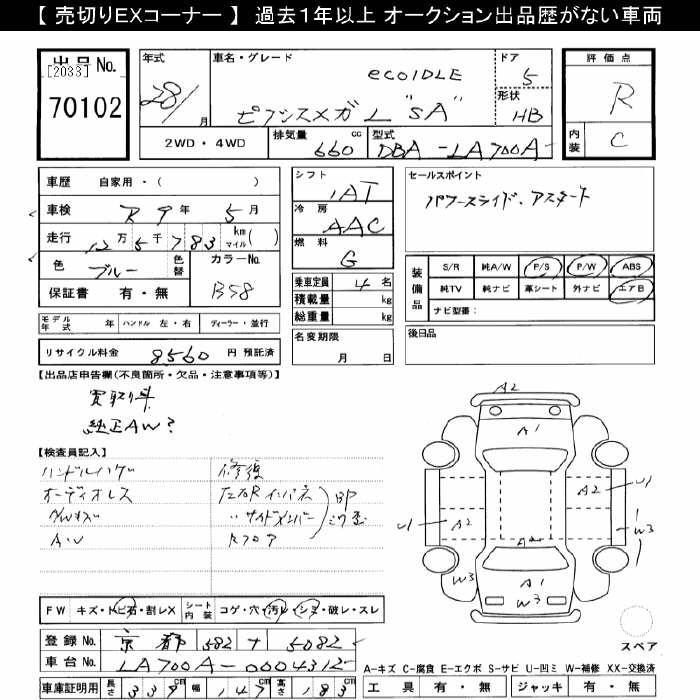 【 売切りEXコーナー 】 過去1年以上 オークション出品歴がない車両
出品 No.
[2033]
70102
年式
28/
月
車名・グレード
eco IDLE
ピクシスメガ L "SA"
ドア
5
形状
HB
2WD ・ 4WD
排気量
660
cc
型式
DBA - LA700A
評価点
R
内装
C
車歴 自家用・( )
車検 R9年 5月
走行 12万 5千 783 km マイル( )
色 ブルー
色替
カラーNo.
B58
保証書 有・無
シフト
IAT
冷房
AAC
燃料
G
乗車定員 4 名
積載量 kg
総重量 kg
セールスポイント
パワースライド、アスタート
装備品
S/R 純A/W P/S P/W ABS
純TV 純ナビ 革シート 外ナビ エアB
ナビ型番:
モデル年式 年
ハンドル 左・右
ディーラー・並行
名変期限
月 日
後日品
リサイクル料金 8560 円 預託済
【出品店申告欄(不良箇所・欠品・注意事項等)】
買取り車
純正AW?
【検査員記入】
オーディオレス
修復
左右Rインパネ
〃サイドメンバー
Rフロア
BP
A2
A1
A2
U1
U1
A2
W3
A2
W3
A1
W3
FW キズ・トビ石・割レX
シート内装 コゲ・穴・汚レ・シミ・破レ・スレ
登録 No. 京都 582 ナ 5082
車台 No. LA700A-0004312
車庫証明用 長さ 339cm 幅 147cm 高さ 183cm
スペア
A-キズ C-腐食 E-エクボ S-サビ U-凹ミ W-補修 XX-交換済
工具 有・無 ジャッキ 有・無